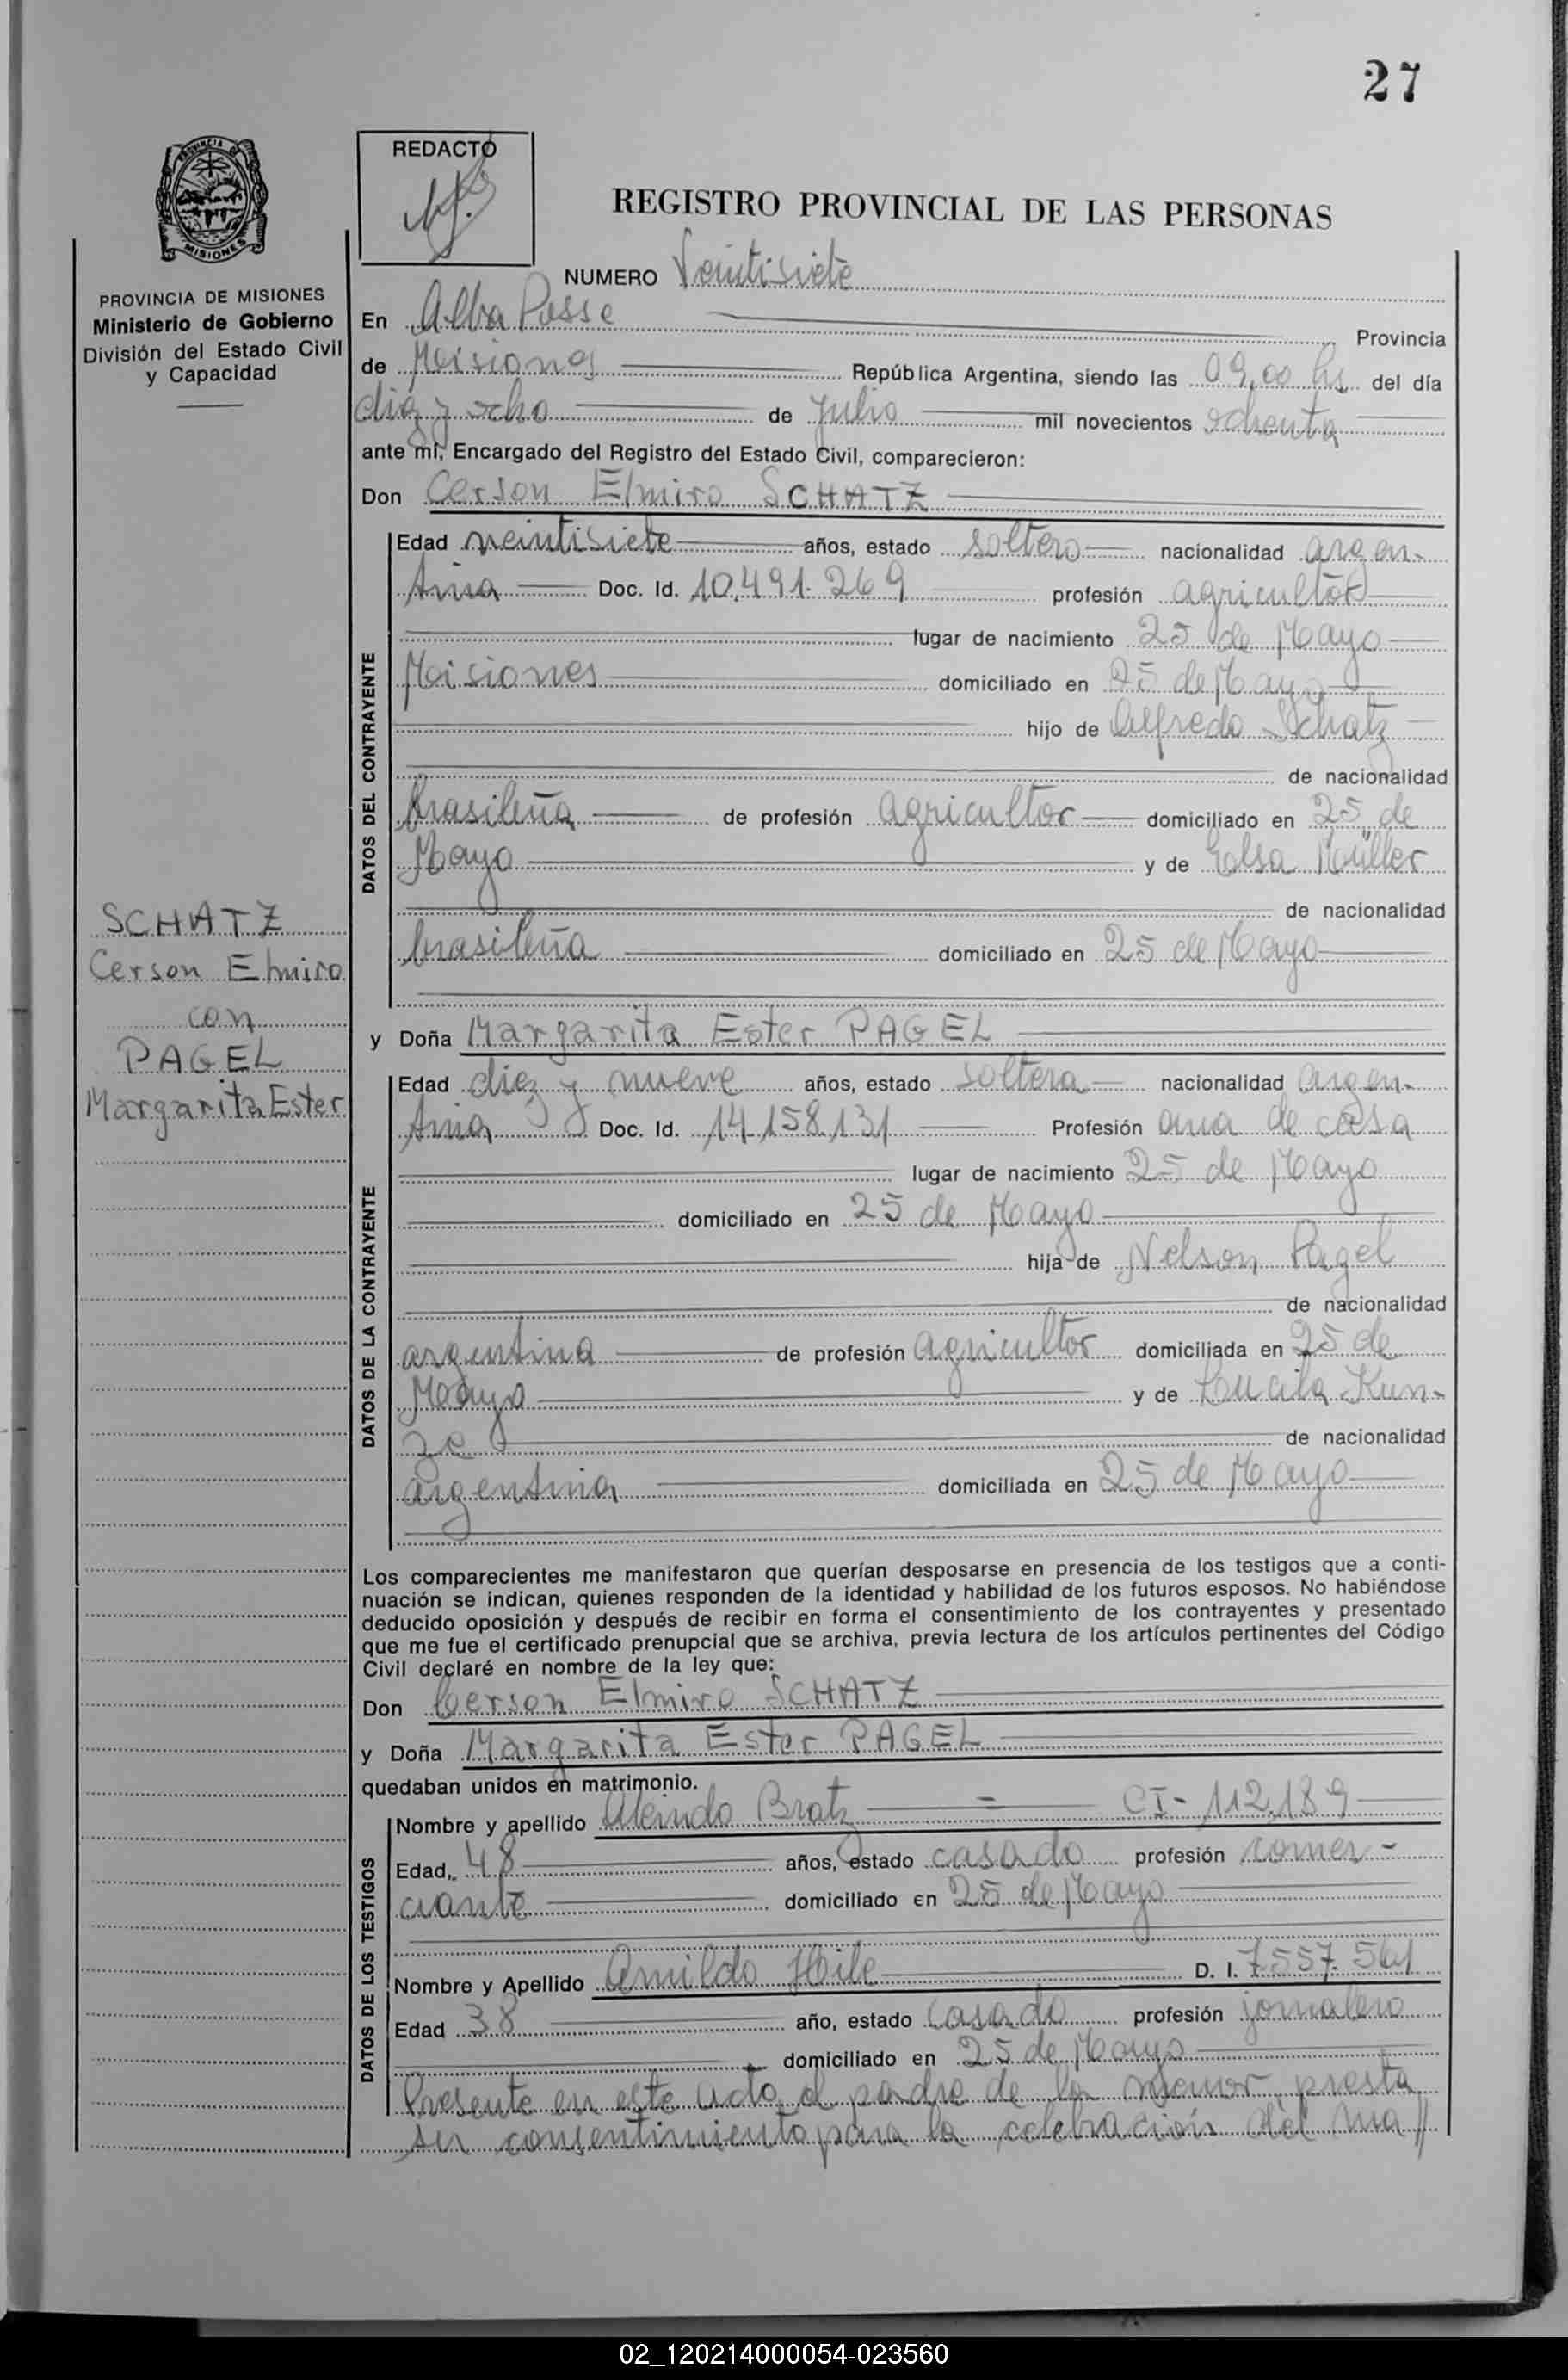 27
REDACTO
REGISTRO PROVINCIAL DE LAS PERSONAS
NUMERO Veintisiete
PROVINCIA DE MISIONES
Ministerio de Gobierno
División del Estado Civil
y Capacidad
En Alba Posse Provincia
de Misiones República Argentina, siendo las 09,00 hs del día
diez y ocho de julio mil novecientos ochenta
ante mí, Encargado del Registro del Estado Civil, comparecieron:
Don Cerson Elmiro SCHATZ
DATOS DEL CONTRAYENTE
Edad veintisiete años, estado soltero nacionalidad argen-
tina Doc. Id. 10.491.269 profesión agricultor
lugar de nacimiento 25 de Mayo
Misiones domiciliado en 25 de Mayo
hijo de Alfredo Schatz
de nacionalidad
brasileña de profesión agricultor domiciliado en 25 de
Mayo y de Elsa Müller
de nacionalidad
brasileña domiciliado en 25 de Mayo
SCHATZ
Cerson Elmiro
con
PAGEL
Margarita Ester
y Doña Margarita Ester PAGEL
DATOS DE LA CONTRAYENTE
Edad diez y nueve años, estado soltera nacionalidad argen-
tina Doc. Id. 14.158.131 Profesión ama de casa
lugar de nacimiento 25 de Mayo
domiciliado en 25 de Mayo
hija de Nelson Pagel
de nacionalidad
argentina de profesión agricultor domiciliada en 25 de
Mayo y de Kun-
ze de nacionalidad
argentina domiciliada en 25 de Mayo
Los comparecientes me manifestaron que querían desposarse en presencia de los testigos que a conti-
nuación se indican, quienes responden de la identidad y habilidad de los futuros esposos. No habiéndose
deducido oposición y después de recibir en forma el consentimiento de los contrayentes y presentado
que me fue el certificado prenupcial que se archiva, previa lectura de los artículos pertinentes del Código
Civil declaré en nombre de la ley que:
Don Cerson Elmiro SCHATZ
y Doña Margarita Ester PAGEL
quedaban unidos en matrimonio.
DATOS DE LOS TESTIGOS
Nombre y apellido Bratz = CI- 112.189
Edad, 48 años, estado casado profesión comer-
ciante domiciliado en 25 de Mayo
Nombre y Apellido Hile D. I. 7.557.561
Edad 38 año, estado casado profesión jornalero
domiciliado en 25 de Mayo
Presente en este acto el padre de la menor, presta
su consentimiento para la celebración del ma//
02_120214000054-023560